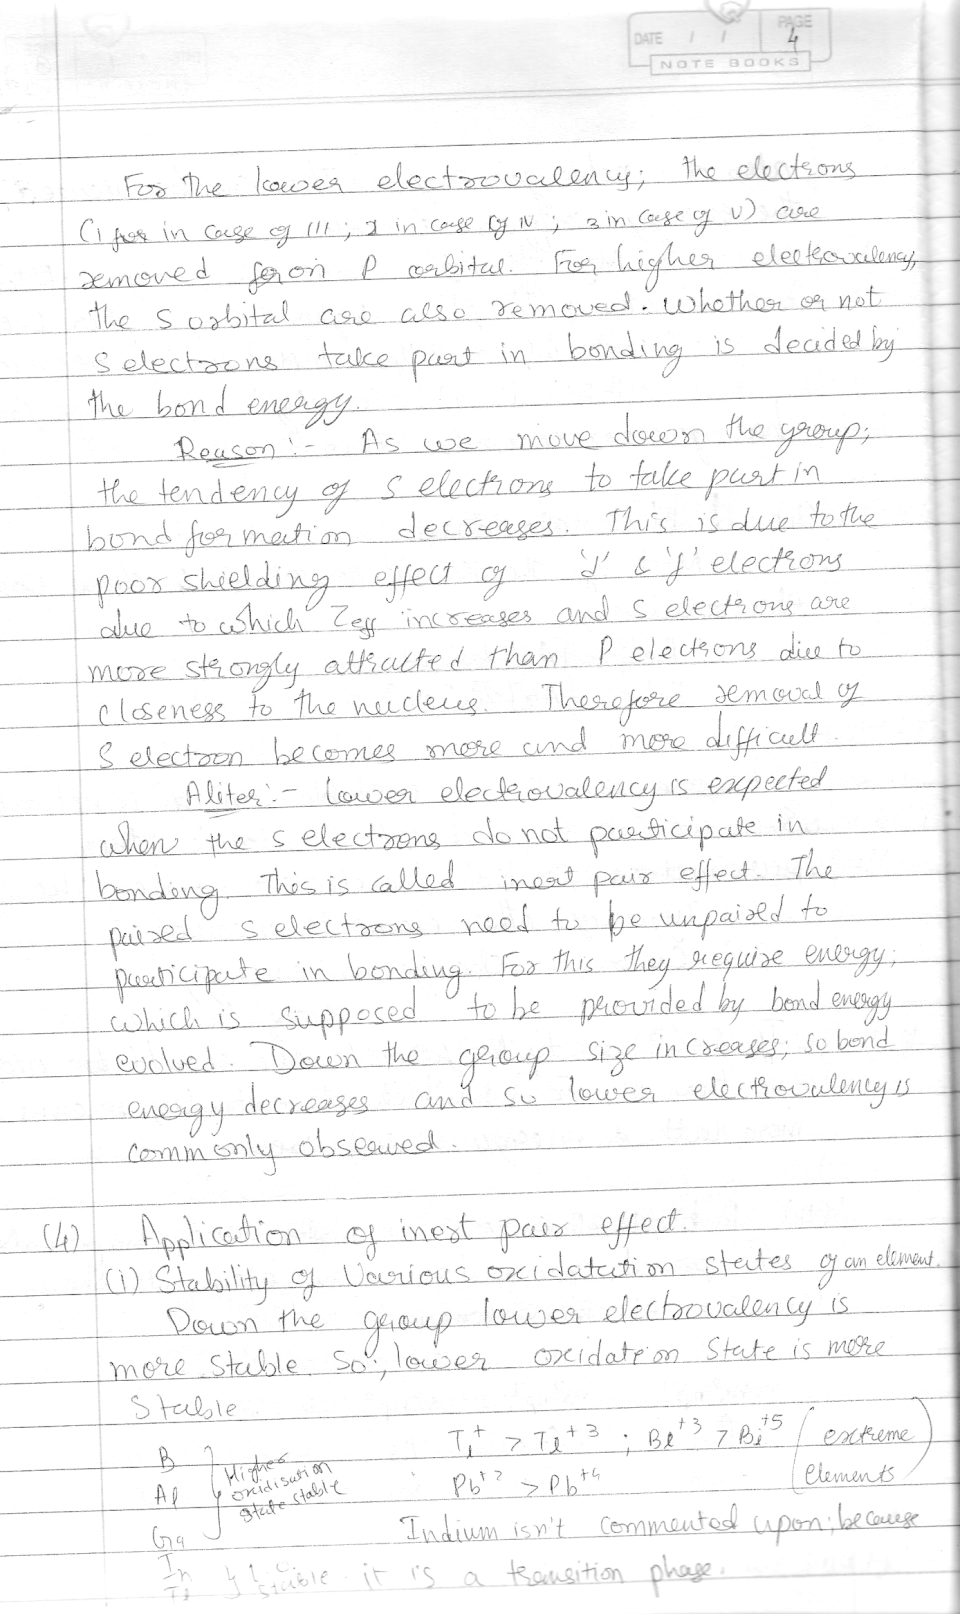 DATE / / PAGE 4
NOTE BOOKS
For the lower electrovalency; the electrons
(1 in case of III ; 2 in case of IV ; 3 in case of V) are
removed from P orbital. For higher electrovalency,
the S orbital are also removed. Whether or not
S electrons take part in bonding is decided by
the bond energy.
Reason :- As we move down the group;
the tendency of S electrons to take part in
bond formation decreases. This is due to the
poor shielding effect of 'd' & 'f' electrons
due to which Zeff increases and S electrons are
more strongly attracted than P electrons due to
closeness to the nucleus. Therefore removal of
S electron becomes more and more difficult.
Aliter :- Lower electrovalency is expected
when the s electrons do not participate in
bonding. This is called inert pair effect. The
paired s electrons need to be unpaired to
participate in bonding. For this they require energy;
which is supposed to be provided by bond energy
evolved. Down the group size increases; so bond
energy decreases and so lower electrovalency is
commonly observed.
(4) Application of inert pair effect.
(i) Stability of Various oxidatation states of an element.
Down the group lower electrovalency is
more stable. So; lower oxidation State is more
Stable
B Al Ga } Higher oxidisation state stable
Tl+ > Tl+3 ; Bi+3 > Bi+5 (extreme
Pb+2 > Pb+4 Elements)
Indium isn't commented upon; because
In Tl } stable it is a transition phase.